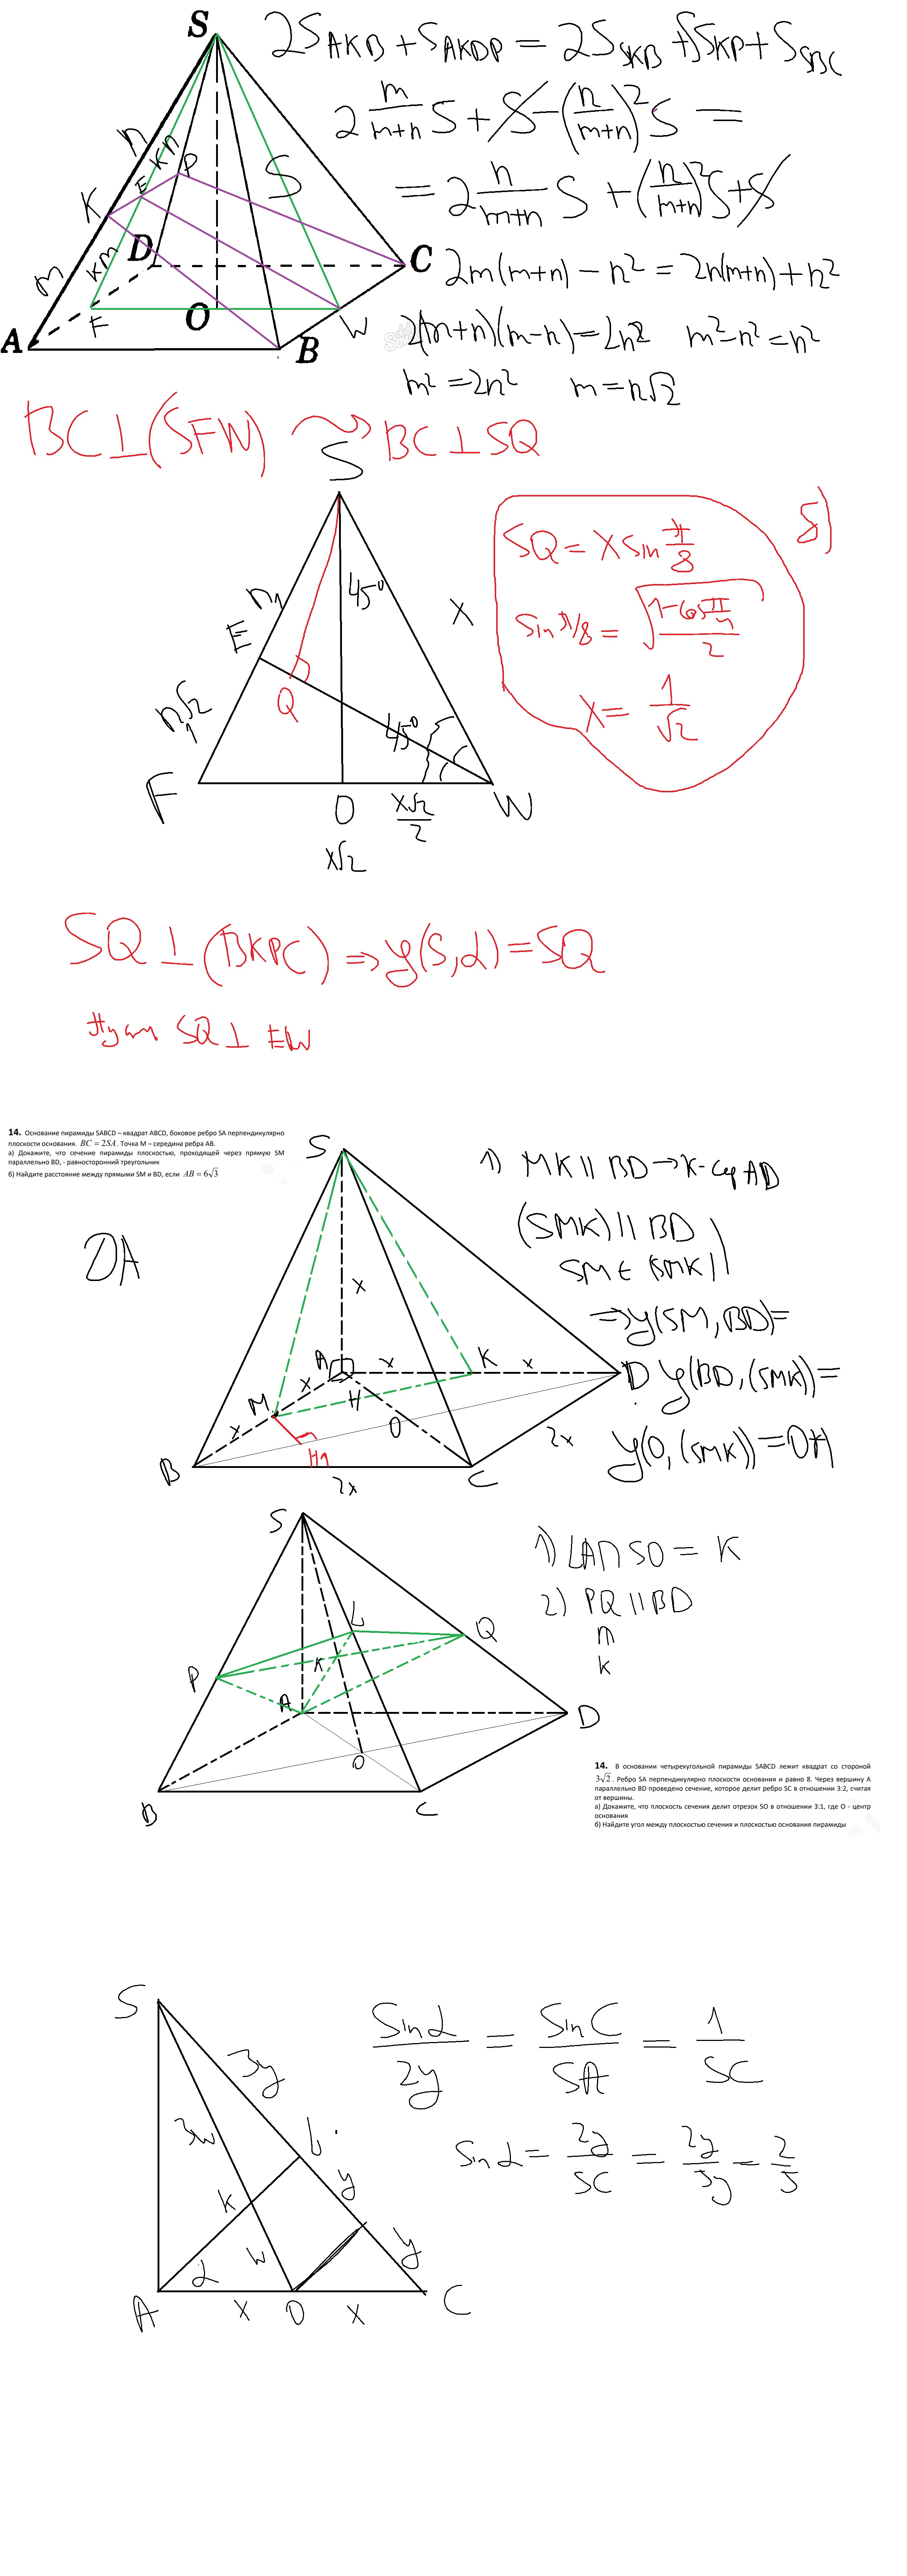 S
2S_AKB + S_AKDP = 2S_SKB + S_SKP + S_SBC
2 m/(m+n) S + S − (n/(m+n))² S =
= 2 n/(m+n) S + (n/(m+n))² S + S
2m(m+n) − n² = 2n(m+n) + n²
2(m+n)(m−n) = 2n² m²−n² = n²
m² = 2n² m = n√2
n
kn
P
S
E
K
m
km
D
C
F
O
W
A
B
BC⊥(SFW) ⇝ BC⊥SQ
S
n₁
45°
X
E
Q
n₁√2
45°
F
O
x√2/2
W
x√2
б)
SQ = X sin π/8
sin π/8 = √((1−cos π/4)/2)
X = 1/√2
SQ ⊥ (BKPC) ⇒ ρ(S,α) = SQ
SQ ⊥ EW
14. Основание пирамиды SABCD – квадрат ABCD, боковое ребро SA перпендикулярно
плоскости основания. BC = 2SA. Точка M – середина ребра AB.
а) Докажите, что сечение пирамиды плоскостью, проходящей через прямую SM
параллельно BD, - равносторонний треугольник
б) Найдите расстояние между прямыми SM и BD, если AB = 6√3
ДА
S
x
A
x
K
x
D
M
x
H
O
x
H1
B
2x
C
2x
1) MK || BD → K - сер AD
(SMK) || BD
SM ∈ (SMK)
⇒ ρ(SM, BD) =
ρ(BD, (SMK)) =
ρ(O, (SMK)) = OH
S
L
Q
P
K
A
D
O
B
C
1) LA∩SO = K
2) PQ || BD
K
14. В основании четырехугольной пирамиды SABCD лежит квадрат со стороной
3√2. Ребро SA перпендикулярно плоскости основания и равно 8. Через вершину A
параллельно BD проведено сечение, которое делит ребро SC в отношении 3:2, считая
от вершины.
а) Докажите, что плоскость сечения делит отрезок SO в отношении 3:1, где O - центр
основания
б) Найдите угол между плоскостью сечения и плоскостью основания пирамиды
S
3y
3w
L
k
y
w
y
α
A
x
O
x
C
Sin α/2y = Sin C/SA = 1/SC
Sin α = 2y/SC = 2y/5y = 2/5